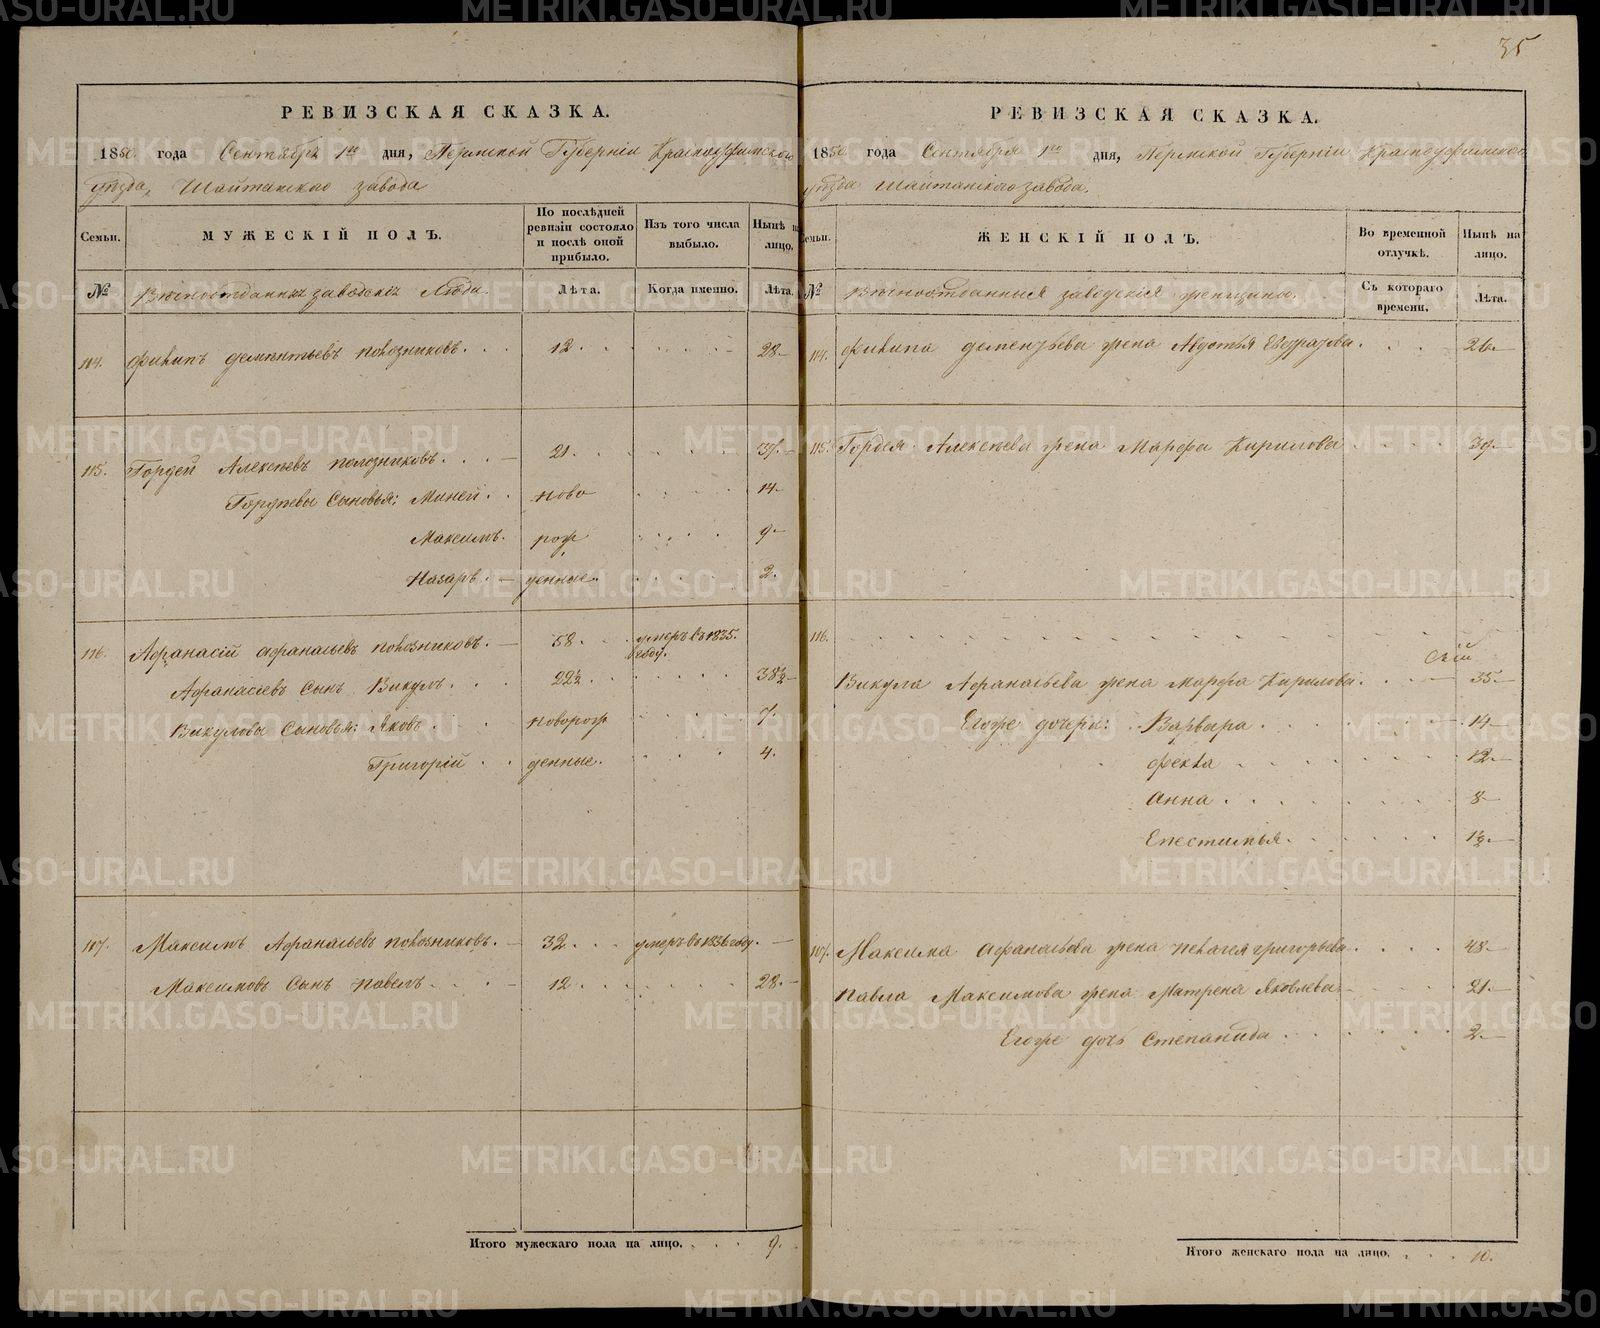 35
РЕВИЗСКАЯ СКАЗКА.
1850 года Сентября 1го дня, Пермской Губерніи Красноуфимскаго
уѣзда, Шайтанскаго завода
Семьи.
МУЖЕСКІЙ ПОЛЪ.
По послѣдней ревизіи состояло и послѣ оной прибыло.
Изъ того числа выбыло.
Нынѣ на лицо.
№
Вѣчноотданныхъ заводскихъ Люди.
Лѣта.
Когда именно.
Лѣта.
114. Филипъ Дементьевъ Полозниковъ. 12. 28.
115. Гордей Алексѣевъ Полозниковъ. 21. 37.
Гордѣевы Сыновья: Миней. ново 14.
Максимъ. рож 9.
Назаръ. денные. 2.
116. Афанасій Афанасьевъ Полозниковъ. 58. умеръ въ 1835. году.
Афанасіевъ Сынъ Викулъ. 22½ 38½
Викуловы Сыновья: Яковъ. новорож 7.
Григорій денные. 4.
117. Максимъ Афанасьевъ Полозниковъ. 32. умеръ въ 1836 году.
Максимовъ Сынъ Павелъ 12. 28.
Итого мужескаго пола на лицо. 9.
РЕВИЗСКАЯ СКАЗКА.
1850 года Сентября 1го дня, Пермской Губерніи Красноуфимскаго
уѣзда Шайтанскаго завода.
Семьи.
ЖЕНСКІЙ ПОЛЪ.
Во временной отлучкѣ.
Нынѣ на лицо.
№
Вѣчноотданныя заводскія женщины.
Съ котораго времени.
Лѣта.
114. Филипа Дементьева жена Авдотья Евдратова. 26.
115. Гордея Алексѣева жена Марфа Кирилова 39
116.
Викула Афанасьева жена Марфа Кирилова. 35
Егоже дочери: Варвара. 14
Фекла 12.
Анна. 8
Епестимья. 1½.
117. Максима Афанасьева жена Пелагея Григорьева. 48
Павла Максимова жена Матрена Яковлева 21.
Егоже дочь Степанида 2.
Итого женскаго пола на лицо. 10.
METRIKI.GASO-URAL.RU